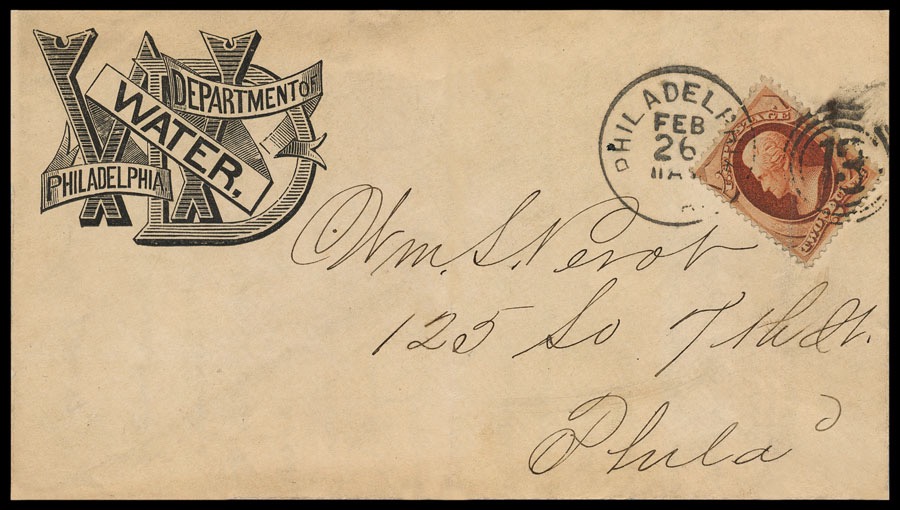 DEPARTMENT OF
WATER.
PHILADELPHIA
PHILADELP
FEB
26
11A
Wm. S. Perot
125 So 7th St.
Phila